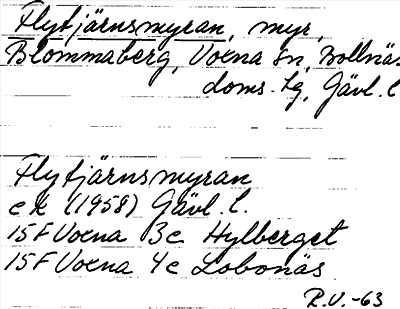 Flytjärnsmyran, myr,
Blommaberg, Voxna sn, Bollnäs
doms. lg, Gävl. l
Flytjärnsmyran
ek (1958) Gävl. l.
15F Voxna 3c Hylberget
15F Voxna 4c Lobonäs
R.V.-63